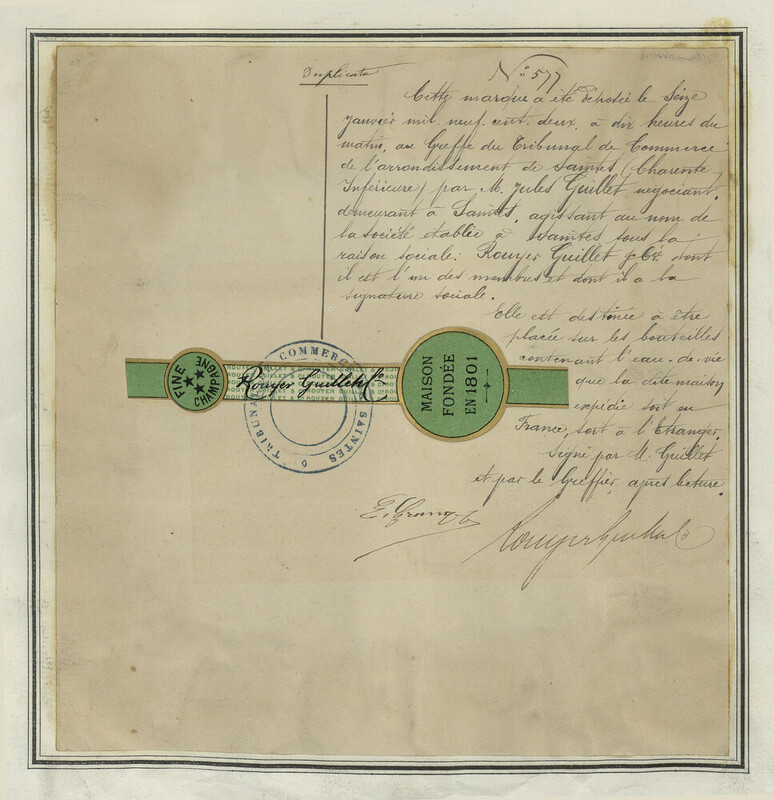 Duplicata
N° 577
Cette marque a été déposée le Seize
janvier mil. neuf. cent. deux, à dix heures du
matin, au Greffe du Tribunal de Commerce
de l'arrondissement de Saintes (Charente
Inférieure) par M. Jules Guillet négociant,
demeurant à Saintes, agissant au nom de
la société établie à Saintes sous la
raison sociale: Rouyer Guillet & Cie dont
il est l'un des membres et dont il a la
signature sociale.
Elle est destinée à être
placée sur les bouteilles
contenant l'eau-de-vie
que la dite maison
expédie soit en
France, soit à l'Etranger.
Signé par M. Guillet
et par le Greffier, après lecture.
FINE
CHAMPAGNE
Rouyer Guillet & Co
MAISON
FONDÉE
EN 1801
TRIBUNAL
COMMERCE
SAINTES
Rouyer Guillet & Co